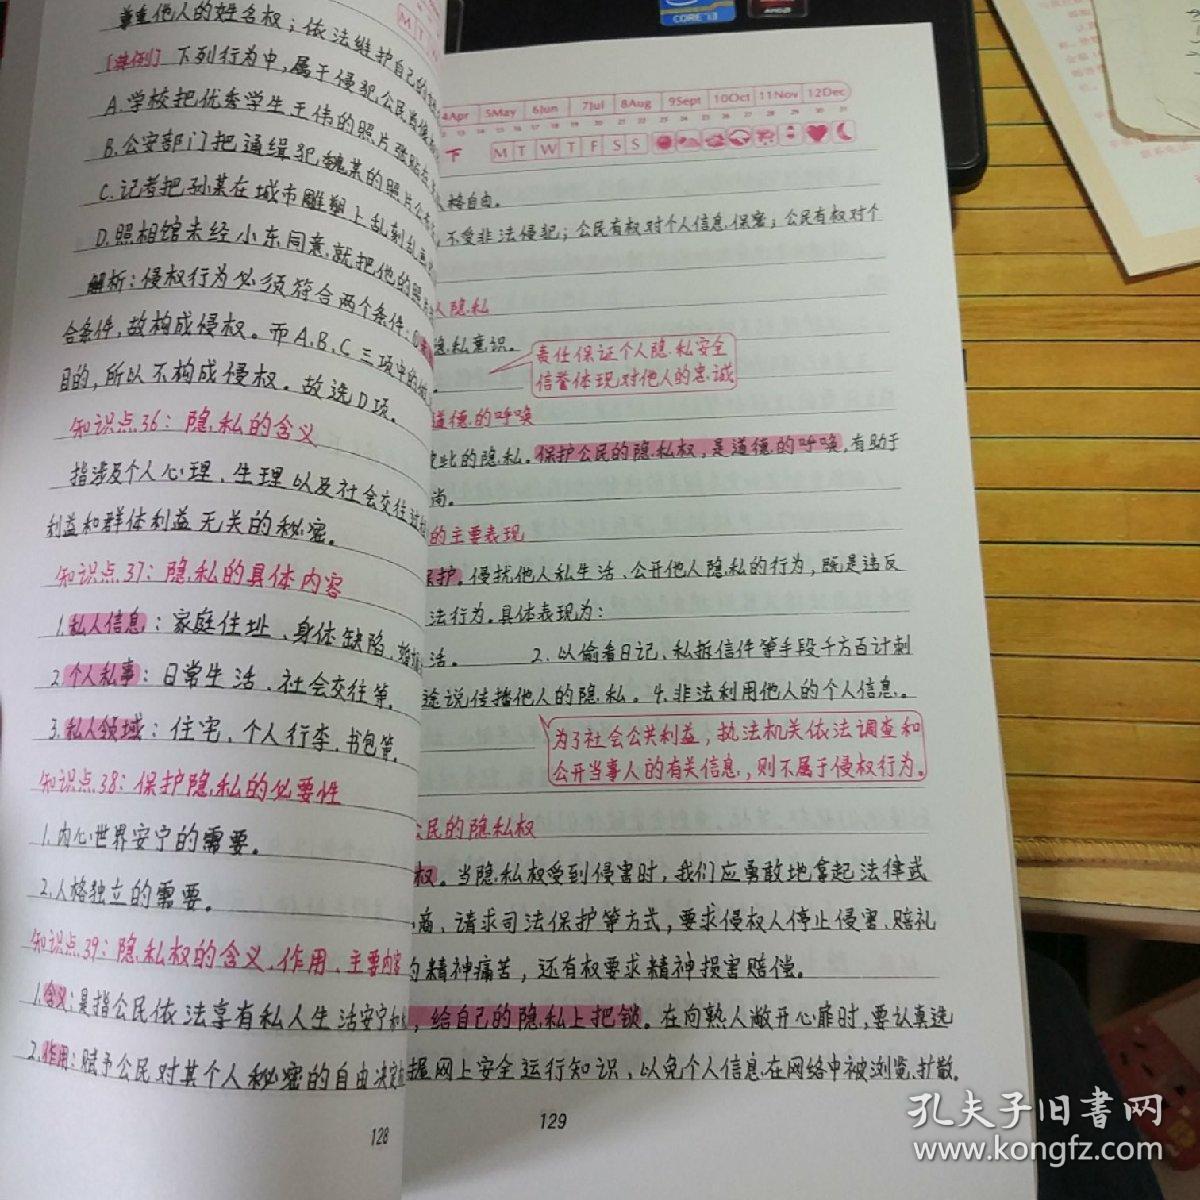 尊重他人的姓名权；依法维护自己的
[典例] 下列行为中，属于侵犯公民肖像
A.学校把优秀学生王伟的照片张贴在
B.公安部门把通缉犯魏某的照片公布
C.记者把孙某在城市雕塑上乱刻乱画
D.照相馆未经小东同意，就把他的照片
解析：侵权行为必须符合两个条件：①
合条件，故构成侵权。而A、B、C三项中的
目的，所以不构成侵权。故选D项。
知识点36：隐私的含义
指涉及个人心理、生理以及社会交往过
利益和群体利益无关的秘密。
知识点37：隐私的具体内容
1.私人信息：家庭住址、身体缺陷、婚
2.个人私事：日常生活、社会交往等。
3.私人领域：住宅、个人行李、书包等。
知识点38：保护隐私的必要性
1.内心世界安宁的需要。
2.人格独立的需要。
知识点39：隐私权的含义、作用、主要内容
1.含义：是指公民依法享有私人生活安宁和
2.作用：赋予公民对其个人秘密的自由决定
128
4Apr 5May 6Jun 7Jul 8Aug 9Sept 10Oct 11Nov 12Dec
下 M T W T F S S
人格自由。
，不受非法侵犯；公民有权对个人信息保密；公民有权对个
人隐私
隐私意识。
责任保证个人隐私安全
信誉体现对他人的忠诚
道德的呼唤
彼此的隐私。保护公民的隐私权，是道德的呼唤，有助于
尚。
的主要表现
保护。侵扰他人私生活、公开他人隐私的行为，既是违反
法行为。具体表现为：
活。 2.以偷看日记、私拆信件等手段千方百计刺
途说传播他人的隐私。4.非法利用他人的个人信息。
为了社会公共利益，执法机关依法调查和
公开当事人的有关信息，则不属于侵权行为。
公民的隐私权
权。当隐私权受到侵害时，我们应勇敢地拿起法律武
商、请求司法保护等方式，要求侵权人停止侵害、赔礼
的精神痛苦，还有权要求精神损害赔偿。
，给自己的隐私上把锁。在向熟人敞开心扉时，要认真选
握网上安全运行知识，以免个人信息在网络中被浏览、扩散。
129
CORE i3
AMD
孔夫子旧书网
www.kongfz.com